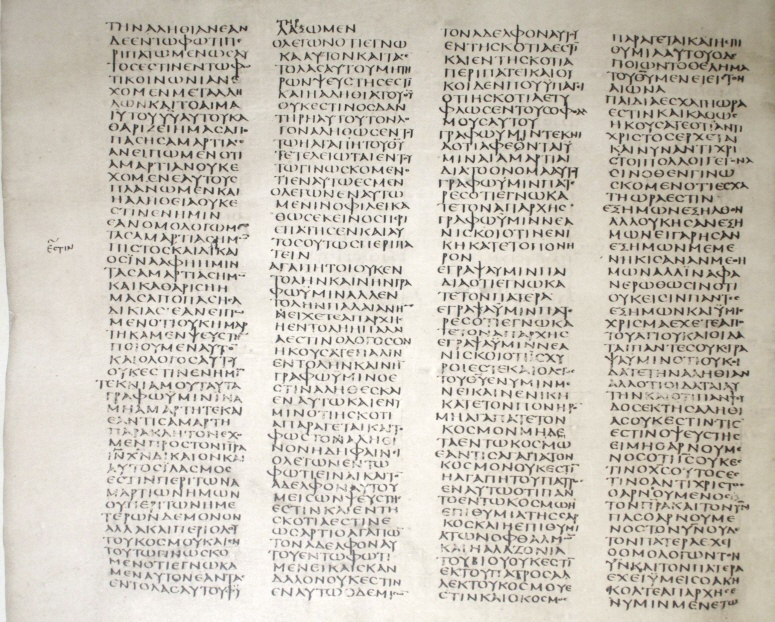 ΤΗΝΑΛΗΘΙΑΝΕΑΝ
ΔΕΕΝΤΩΦΩΤΙΠΕ
ΡΙΠΑΤΩΜΕΝΩΣΑΥ
ΤΟΣΕΣΤΙΝΕΝΤΩΦΩ
ΤΙΚΟΙΝΩΝΙΑΝΕ
ΧΟΜΕΝΜΕΤΑΛΛΗ
ΛΩΝΚΑΙΤΟΑΙΜΑ
ΙΥΤΟΥΥΥΑΥΤΟΥΚΑ
ΘΑΡΙΖΕΙΗΜΑΣΑΠΟ
ΠΑΣΗΣΑΜΑΡΤΙΑΣ
ΑΝΕΙΠΩΜΕΝΟΤΙ
ΑΜΑΡΤΙΑΝΟΥΚΕ
ΧΟΜΕΝΕΑΥΤΟΥΣ
ΠΛΑΝΩΜΕΝΚΑΙ
ΗΑΛΗΘΕΙΑΟΥΚΕ
ΣΤΙΝΕΝΗΜΙΝ
ΕΑΝΟΜΟΛΟΓΩΜΕ
ΤΑΣΑΜΑΡΤΙΑΣΗΜΩ
ΠΙΣΤΟΣΚΑΙΔΙΚΑΙ
ΕΣΤΙΝ
ΟΣΙΝΑΑΦΗΗΜΙΝ
ΤΑΣΑΜΑΡΤΙΑΣΗΜ
ΚΑΙΚΑΘΑΡΙΣΗΗ
ΜΑΣΑΠΟΠΑΣΗΣΑ
ΔΙΚΙΑΣΕΑΝΕΙΠΩ
ΜΕΝΟΤΙΟΥΚΗΜΑΡ
ΤΗΚΑΜΕΝΨΕΥΣΤΗ
ΠΟΙΟΥΜΕΝΑΥΤΟ
ΚΑΙΟΛΟΓΟΣΑΥΤΟΥ
ΟΥΚΕΣΤΙΝΕΝΗΜΙ
ΤΕΚΝΙΑΜΟΥΤΑΥΤΑ
ΓΡΑΦΩΥΜΙΝΙΝΑ
ΜΗΑΜΑΡΤΗΤΕΚΑΙ
ΕΑΝΤΙΣΑΜΑΡΤΗ
ΠΑΡΑΚΛΗΤΟΝΕΧΟ
ΜΕΝΠΡΟΣΤΟΝΠΡΑ
ΙΝΧΝΔΙΚΑΙΟΝΚΑΙ
ΑΥΤΟΣΙΛΑΣΜΟΣ
ΕΣΤΙΝΠΕΡΙΤΩΝΑ
ΜΑΡΤΙΩΝΗΜΩΝ
ΟΥΠΕΡΙΤΩΝΗΜΕ
ΤΕΡΩΝΔΕΜΟΝΟΝ
ΑΛΛΑΚΑΙΠΕΡΙΟΛΟΥ
ΤΟΥΚΟΣΜΟΥΚΑΙΕΝ
ΤΟΥΤΩΓΙΝΩΣΚΟ
ΜΕΝΟΤΙΕΓΝΩΚΑ
ΜΕΝΑΥΤΟΝΕΑΝΤΑΣ
ΕΝΤΟΛΑΣΑΥΤΟΥΦΥ
ΤΗΡ
ΛΑΞΩΜΕΝ
ΟΛΕΓΩΝΟΤΙΕΓΝΩ
ΚΑΑΥΤΟΝΚΑΙΤΑΣΕ
ΤΟΛΑΣΑΥΤΟΥΜΗΤΗ
ΡΩΝΨΕΥΣΤΗΣΕΣΤΙ
ΚΑΙΗΑΛΗΘΙΑΤΟΥΘΥ
ΟΥΚΕΣΤΙΝΟΣΔΑΝ
ΤΗΡΗΑΥΤΟΥΤΟΝΛΟ
ΓΟΝΑΛΗΘΩΣΕΝΤΟΥ
ΤΩΗΑΓΑΠΗΤΟΥΘΥ
ΤΕΤΕΛΕΙΩΤΑΙΕΝΤΟΥ
ΤΩΓΙΝΩΣΚΟΜΕΝΟ
ΤΙΕΝΑΥΤΩΕΣΜΕΝ
ΟΛΕΓΩΝΕΝΑΥΤΩ
ΜΕΝΙΝΟΦΙΛΕΙΚΑ
ΘΩΣΕΚΕΙΝΟΣΠΕΡΙ
ΕΠΑΤΗΣΕΝΚΑΙΑΥ
ΤΟΣΟΥΤΩΣΠΕΡΙΠΑ
ΤΕΙΝ
ΑΓΑΠΗΤΟΙΟΥΚΕΝ
ΤΟΛΗΝΚΑΙΝΗΝΓΡΑ
ΦΩΥΜΙΝΑΛΛΕΝ
ΤΟΛΗΝΠΑΛΑΙΑΝΗ
ΝΕΙΧΕΤΕΑΠΑΡΧΗΣ
ΗΕΝΤΟΛΗΗΠΑΛΑΙ
ΑΕΣΤΙΝΟΛΟΓΟΣΟΝ
ΗΚΟΥΣΑΤΕΠΑΛΙΝ
ΕΝΤΟΛΗΝΚΑΙΝΗ
ΓΡΑΦΩΥΜΙΝΟΕ
ΣΤΙΝΑΛΗΘΕΣΚΑΙ
ΕΝΑΥΤΩΚΑΙΕΝΥ
ΜΙΝΟΤΙΗΣΚΟΤΙ
ΑΠΑΡΑΓΕΤΑΙΚΑΙΤΟ
ΦΩΣΤΟΑΛΗΘΕΙ
ΝΟΝΗΔΗΦΑΙΝΕΙ
ΟΛΕΓΩΝΕΝΤΩ
ΦΩΤΙΕΙΝΑΙΚΑΙΤΟ
ΑΔΕΛΦΟΝΑΥΤΟΥ
ΜΕΙΣΩΝΨΕΥΣΤΗΣ
ΕΣΤΙΝΚΑΙΕΝΤΗ
ΣΚΟΤΙΑΕΣΤΙΝΕ
ΩΣΑΡΤΙΟΑΓΑΠΩ
ΤΟΝΑΔΕΛΦΟΝΑΥ
ΤΟΥΕΝΤΩΦΩΤΙ
ΜΕΝΕΙΚΑΙΣΚΑΝ
ΔΑΛΟΝΟΥΚΕΣΤΙΝ
ΕΝΑΥΤΩΟΔΕΜΙΣΩ
ΤΟΝΑΔΕΛΦΟΝΑΥΤΟΥ
ΕΝΤΗΣΚΟΤΙΑΕΣΤΙ
ΚΑΙΕΝΤΗΣΚΟΤΙΑ
ΠΕΡΙΠΑΤΕΙΚΑΙΟΥ
ΚΟΙΔΕΝΠΟΥΥΠΑΓΕΙ
ΟΤΙΗΣΚΟΤΙΑΕΤΥ
ΦΛΩΣΕΝΤΟΥΣΟΦΘΑ
ΜΟΥΣΑΥΤΟΥ
ΓΡΑΦΩΥΜΙΝΤΕΚΝΙ
ΑΟΤΙΑΦΕΩΝΤΑΙΥ
ΜΙΝΑΙΑΜΑΡΤΙΑΙ
ΔΙΑΤΟΟΝΟΜΑΑΥΤΟΥ
ΓΡΑΦΩΥΜΙΝΠΑΤΕ
ΡΕΣΟΤΙΕΓΝΩΚΑ
ΤΕΤΟΝΑΠΑΡΧΗΣ
ΓΡΑΦΩΥΜΙΝΝΕΑ
ΝΙΣΚΟΙΟΤΙΝΕΝΙ
ΚΗΚΑΤΕΤΟΠΟΝΗ
ΡΟΝ
ΕΓΡΑΨΑΥΜΙΝΠΑΙ
ΔΙΑΟΤΙΕΓΝΩΚΑ
ΤΕΤΟΝΠΑΤΕΡΑ
ΕΓΡΑΨΑΥΜΙΝΠΑΤΕ
ΡΕΣΟΤΙΕΓΝΩΚΑ
ΤΕΤΟΝΑΠΑΡΧΗΣ
ΕΓΡΑΨΑΥΜΙΝΝΕΑ
ΝΙΣΚΟΙΟΤΙΙΣΧΥ
ΡΟΙΕΣΤΕΚΑΙΟΛΟΓΟΣ
ΤΟΥΘΥΕΝΥΜΙΝΜΕ
ΝΕΙΚΑΙΝΕΝΙΚΗ
ΚΑΤΕΤΟΝΠΟΝΗΡΟ
ΜΗΑΓΑΠΑΤΕΤΟΝ
ΚΟΣΜΟΝΜΗΔΕ
ΤΑΕΝΤΩΚΟΣΜΩ
ΕΑΝΤΙΣΑΓΑΠΑΤΟΝ
ΚΟΣΜΟΝΟΥΚΕΣΤΙ
ΗΑΓΑΠΗΤΟΥΠΑΤΡΟΣ
ΕΝΑΥΤΩΟΤΙΠΑΝ
ΤΟΕΝΤΩΚΟΣΜΩΗ
ΕΠΙΘΥΜΙΑΤΗΣΣΑΡ
ΚΟΣΚΑΙΗΕΠΙΘΥΜΙ
ΑΤΩΝΟΦΘΑΛΜΩ
ΚΑΙΗΑΛΑΖΟΝΙΑ
ΤΟΥΒΙΟΥΟΥΚΕΣΤΙ
ΕΚΤΟΥΠΑΤΡΟΣΑΛ
ΛΕΚΤΟΥΚΟΣΜΟΥΕ
ΣΤΙΝΚΑΙΟΚΟΣΜΟΣ
ΠΑΡΑΓΕΤΑΙΚΑΙΗΕΠΙ
ΘΥΜΙΑΑΥΤΟΥΟΔΕ
ΠΟΙΩΝΤΟΘΕΛΗΜΑ
ΤΟΥΘΥΜΕΝΕΙΕΙΣΤΟΝ
ΑΙΩΝΑ
ΠΑΙΔΙΑΕΣΧΑΤΗΩΡΑ
ΕΣΤΙΝΚΑΙΚΑΘΩΣ
ΗΚΟΥΣΑΤΕΟΤΙΑΝΤΙ
ΧΡΙΣΤΟΣΕΡΧΕΤΑΙ
ΚΑΙΝΥΝΑΝΤΙΧΡΙ
ΣΤΟΙΠΟΛΛΟΙΓΕΓΟΝΑ
ΣΙΝΟΘΕΝΓΙΝΩ
ΣΚΟΜΕΝΟΤΙΕΣΧΑ
ΤΗΩΡΑΕΣΤΙΝ
ΕΞΗΜΩΝΕΞΗΛΘΟΝ
ΑΛΛΟΥΚΗΣΑΝΕΞΗ
ΜΩΝΕΙΓΑΡΗΣΑΝ
ΕΞΗΜΩΝΜΕΜΕ
ΝΗΚΙΣΑΝΑΝΜΕΘΗ
ΜΩΝΑΛΛΙΝΑΦΑ
ΝΕΡΩΘΩΣΙΝΟΤΙ
ΟΥΚΕΙΣΙΝΠΑΝΤΕΣ
ΕΞΗΜΩΝΚΑΙΥΜΙΣ
ΧΡΙΣΜΑΕΧΕΤΕΑΠΟ
ΤΟΥΑΓΙΟΥΚΑΙΟΙΔΑ
ΤΑΙΠΑΝΤΕΣΟΥΚΕΓΡΑ
ΨΑΥΜΙΝΟΤΙΟΥΚΟΙ
ΔΑΤΕΤΗΝΑΛΗΘΙΑΝ
ΑΛΛΟΤΙΟΙΔΑΤΑΙΑΥ
ΤΗΝΚΑΙΟΤΙΠΑΝΨΕΥ
ΔΟΣΕΚΤΗΣΑΛΗΘΙ
ΑΣΟΥΚΕΣΤΙΝΤΙΣ
ΕΣΤΙΝΟΨΕΥΣΤΗΣ
ΕΙΜΗΟΑΡΝΟΥΜΕ
ΝΟΣΟΤΙΙΣΟΥΚΕΣ
ΤΙΝΟΧΣΟΥΤΟΣΕΣ
ΤΙΝΟΑΝΤΙΧΡΙΣΤΟΣ
ΟΑΡΝΟΥΜΕΝΟΣ
ΤΟΝΠΡΑΚΑΙΤΟΝΥΝ
ΠΑΣΟΑΡΝΟΥΜΕ
ΝΟΣΤΟΝΥΝΟΥΔΕ
ΤΟΝΠΑΤΕΡΑΕΧΕΙ
ΟΟΜΟΛΟΓΩΝΤΟΝ
ΥΝΚΑΙΤΟΝΠΑΤΕΡΑ
ΕΧΕΙΥΜΕΙΣΟΑΚΗ
ΚΟΑΤΕΑΠΑΡΧΗΣΕ
ΝΥΜΙΝΜΕΝΕΤΩ